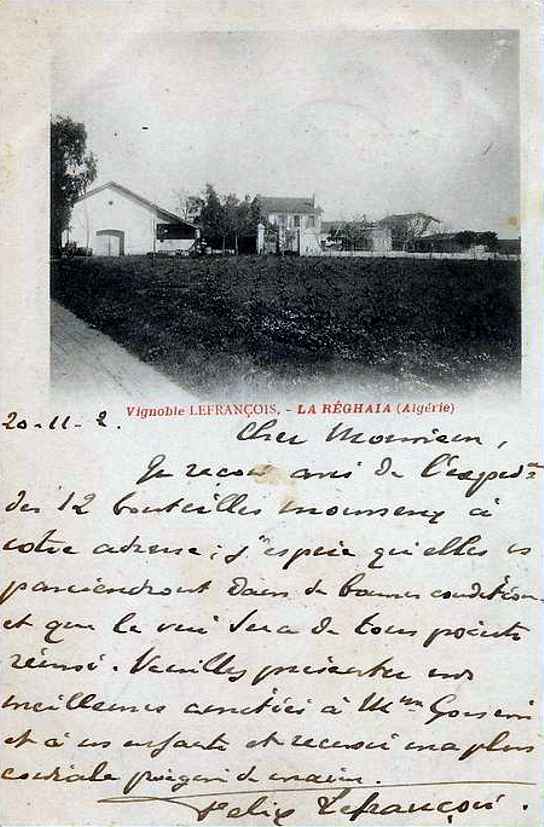 Vignoble LEFRANÇOIS, - LA RÉGHAIA (Algérie)
20-11-2.
Cher Monsieur,
Je reçois avis de l'expedon
des 12 bouteilles mousseux à
votre adresse; j'espère qu'elles vs
parviendront dans de bonnes conditions
et que le vin sera de tous points
réussi. Veuillez présenter nos
meilleures amitiés à Mme
et à vos enfants et recevoir ma plus
cordiale poignée de main.
Felix Lefrançois.